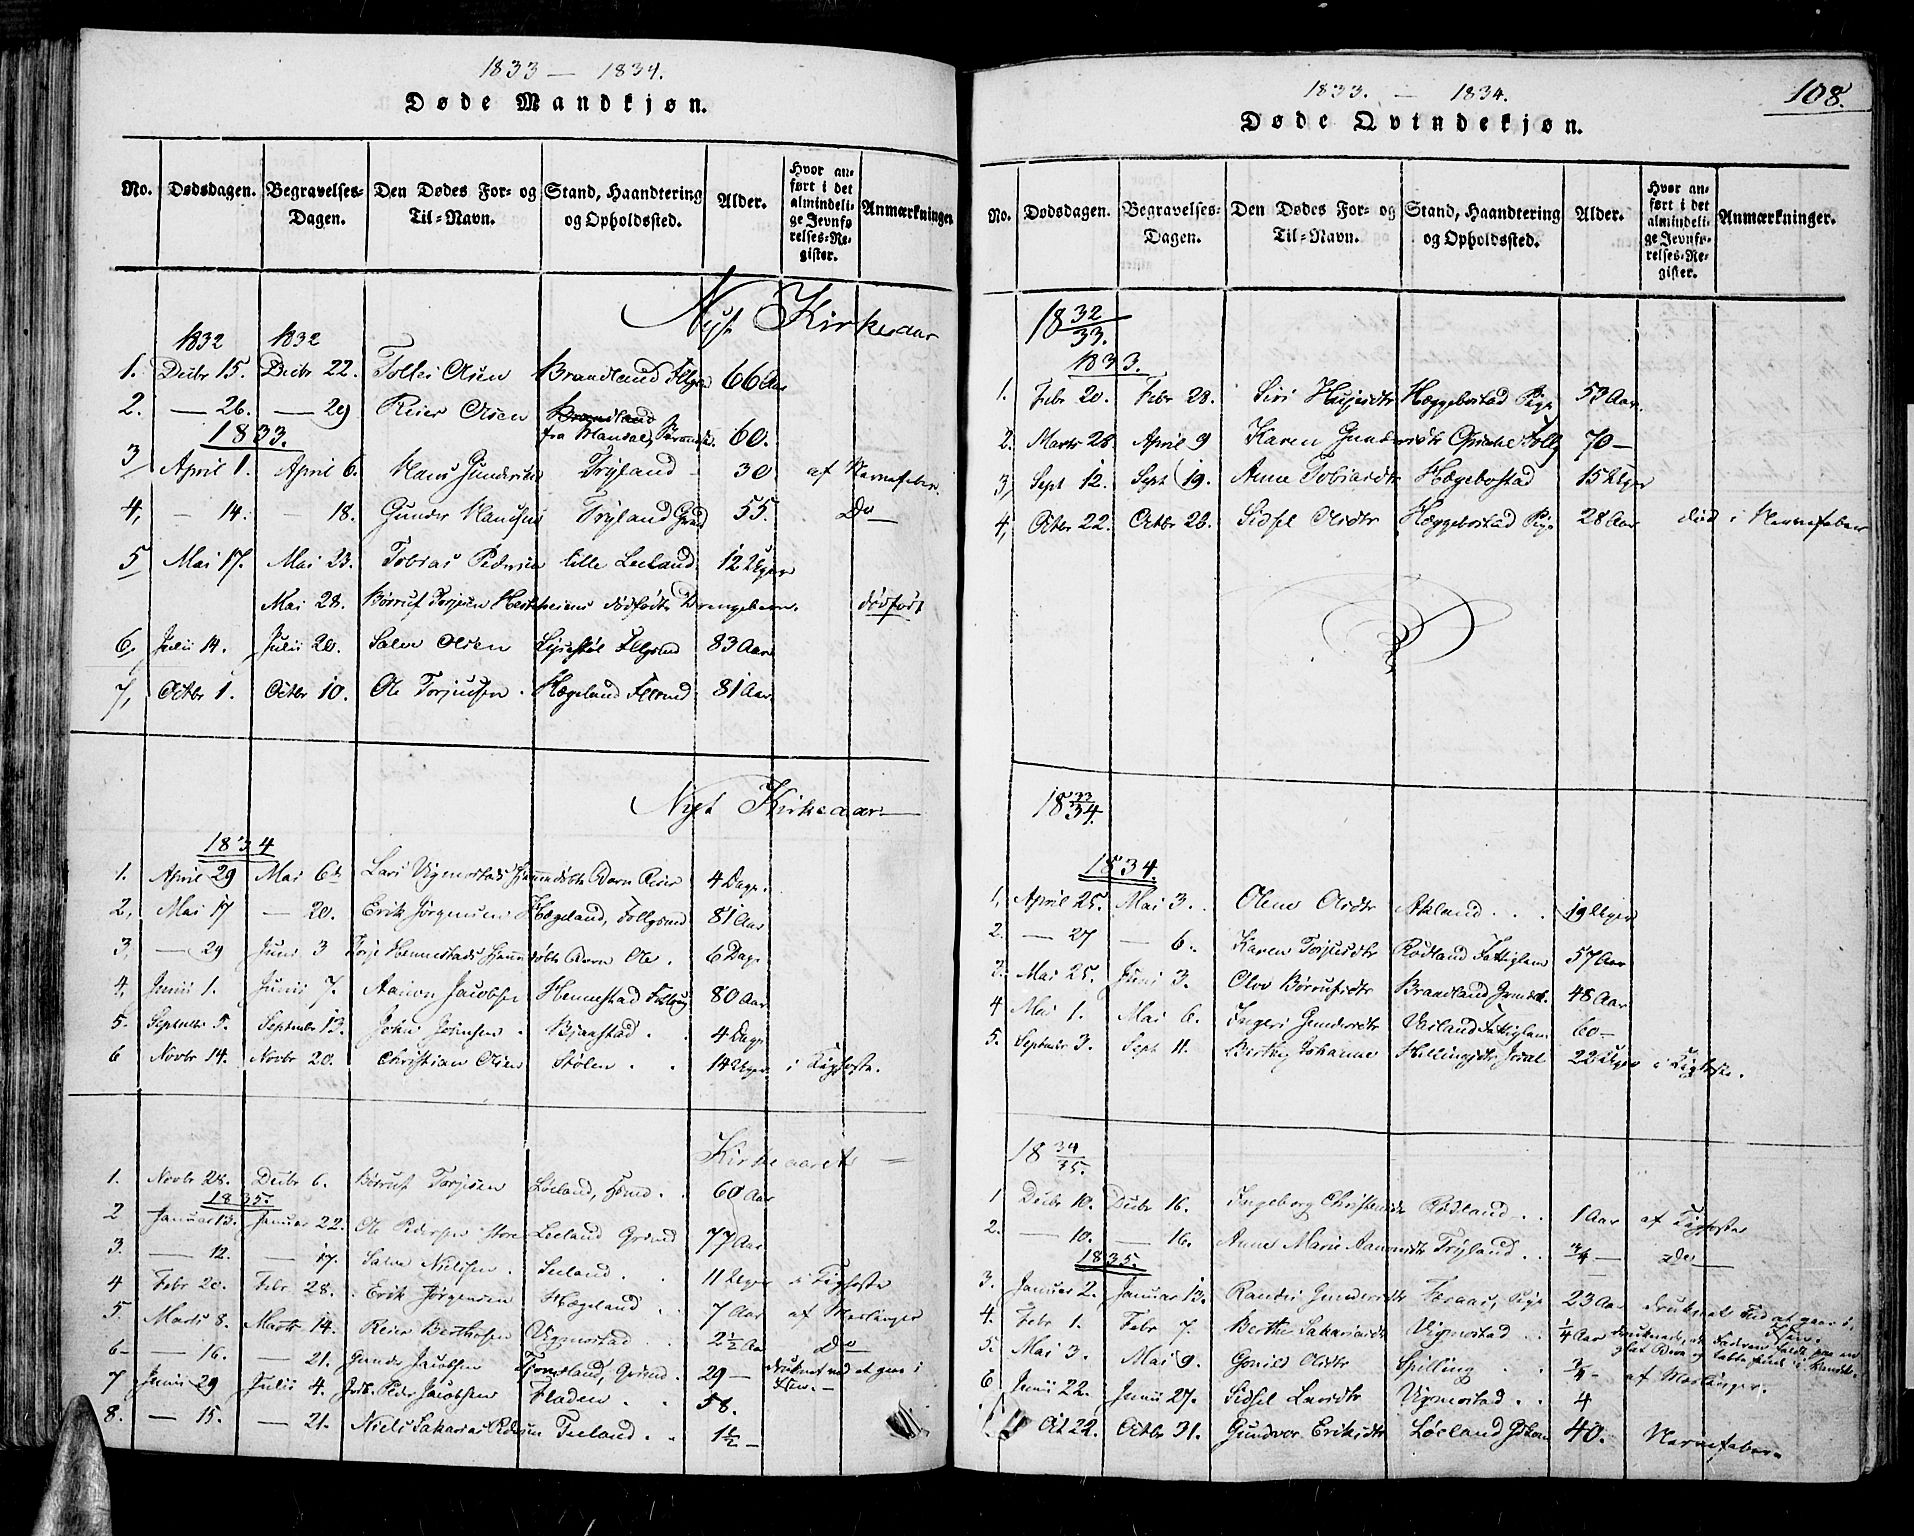 1833 — 1834.
Døde Mandkjøn.
No. Dødsdagen. Begravelses-Dagen. Den Dødes For- og Til-Navn. Stand, Haandtering og Opholdssted. Alder. Hvor anført i det almindelige Jevnførelses-Register. Anmærkninger
Nyt Kirkeaar
1832 1832
1. Decbr 15. Decbr 22. Tollei Olsen Brandland 66 Aar
2. — 26. — 29 Reier Olsen Brandland fra Mandal, 60.
1833.
3, April 1. April 6. Hans Gundersen Tryland 30 af Nervefeber.
4, — 14. — 18. Gunder Hansen Tryland Gmd 55. Do—
5 Mai 17. Mai 23. Tobias Pedersen lille Leeland 12 Uger
Mai 28. Børruf Torjusen dødfødte Drengebarn. dødfødt
6, Julii 14. Julii 20. Salve Olsen Follgmd 83 Aar
7, Octbr 1. Octbr 10. Ole Torjussen. Hægeland 81 Aar
Nyt Kirkeaar
1834
1. April 29 Mai 6te Lars Vigmostads hjemmedøbte Barn Reier 4 Dage.
2, Mai 17 — 20. Erik Jørgensen Hægeland, Follgmd 81 Aar
3, — 29 Juni 3 Torje Hennestads Barn Ole. 6 Dage
4, Junii 1. Junii 7. Aanon Jacobsen Hennestad 80 Aar
5. Septembr 5. Septembr 13. John Johnsen. Bjaastad. 4 Dage
6 Novbr 14. Novbr 20. Christian Olsen Stølen. . 14 Uger. i Kighoste.
Kirkeaaret —
1. Novbr 28. Decbr 6. Børruf Torjusen Løeland, 60 Aar
1835.
2 Januar 13. Januar 22. Ole Pedersen Store Leeland Grmd 77 Aar
3. — 12. — 17. Salve Nielsen. Leeland. 11 Uger i Kighoste
4 Febr 20. Febr 28. Erik Jørgensen Hægeland 7 Aar af Meslinger
5. Marts 8. Marts 14. Reier Berthesen Vigmostad 2½ Aar Do
6 — 16. — 21. Gunder Jacobsen Grmd. 29 — druknet ved at gaae i
7 Junii 29 Julii 4. Peder Jacobsen Fladen. . 58.
8. — 15. — 21. Niels Sakarias Pedersen Leeland. . 1½ —
1833. — 1834.
108.
Døde Qvindekjøn.
No. Dødsdagen. Begravelses-Dagen. Den Dødes For- og Til-Navn. Stand, Haandtering og Opholdssted. Alder. Hvor anført i det almindelige Jevnførelses-Register. Anmærkninger.
18 32/33.
1833.
1. Febr 20. Febr 28. Siri Hæggebostad Pige 53 Aar.
2. Marts 28 April 9 Karen Gundersdtr 70 —
3, Sept 12. Sept 19. Anne Tobiasdtr Hægebostad 15 Uger
4, Octbr 22. Octbr 26. Sidsel Olsdtr Hæggebostad Pige 28 Aar død i Nervefeber
18 33/34.
1834.
1, April 25. Mai 3. Olene Olsdtr Aeland. . . 19 Uger
2. — 27 — 6. Karen Torjusdtr Rødland Fattiglem 57 Aar
3. Mai 25. Juni 3. Olov Børrufsdtr Brandland 48 Aar
4 Mai 1. Mai 6. Ingeri Gundersdtr Fattiglem 60 —
5. Septembr 3. Sept 11. Berthe Johanne 22 Uger i Kighoste.
18 34/35.
1 Decbr 10. Decbr 16. Ingeborg Christensdtr Rødland. . 1 Aar af Kighoste
2. — 10. — 16. Anne Marie Aanensdtr Tryland. . ¾ — Do —
1835.
3. Januar 2. Januar 13. Randi Gundersdtr Pige 23 Aar druknet ved at gaae i
4. Febr 1. Febr 7. Berthe Sakariasdtr Vigmostad. . ¼ Aar druknede, at Faderen faldt paa
5. Mai 3. Mai 9. Gonild Olsdtr Spilling . ¾ — af Meslinger.
6 Junii 22. Junii 27. Sidsel Larsdtr Vigmostad. . 4
Oct 22. Octbr 31. Gundvor Eriksdtr Løeland 40. Nervefeber.